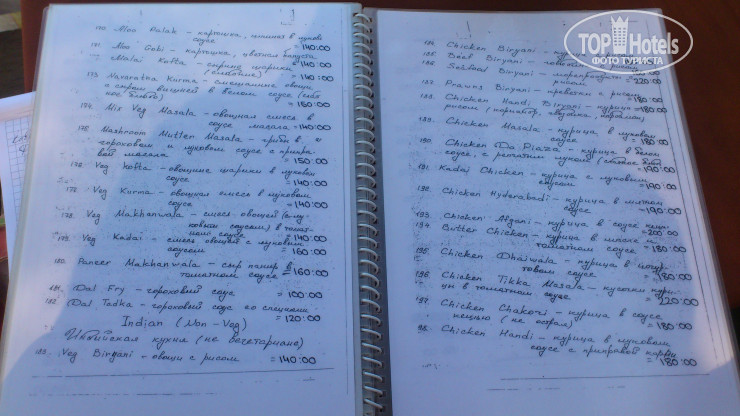 170. Aloo Palak - картошка, шпинат в луковом
соусе =140:00
171. Aloo Gobi - картошка, цветная капуста
=140:00
Malai Kofta - сырно шарики
=140:00
173. Navaratna Kurma - смешанные овощи
с сыром вишней в белом соусе
=160:00
174. Mix Veg Masala - овощная смесь в
соусе масала =140:00
175. Mashroom Mutter Masala - грибы в
гороховом и луковом соусе с
масала =150:00
176. Veg Kofta - овощные шарики в луковом
соусе =140:00
177. Veg Kurma - овощная смесь в луковом
соусе =140:00
178. Veg Makhanwala - смесь овощей
соусе =140:00
179. Veg Kadai - смесь овощей с луковым
соусом =160:00
180. Paneer Makhanwala - сыр панир в
томатном соусе =160:00
181. Dal Fry - гороховый соус =100:00
182. Dal Tadka - гороховый соус со специями
=120:00
Indian (Non-Veg)
Индийская кухня (не вегетариано)
183. Veg Biryani - овощи с рисом =140:00
184. Chicken Biryani - курица
185. Beef Biryani -
186. Seafood Biryani - морепродукты
рисом =220:00
187. Prawns Biryani - креветки с рисом
=180:00
188. Chicken Handi Biryani - курица с
рисом =180:00
189. Chicken Masala - курица в луковом
соусе =180:00
190. Chicken Do Piaza - курица в белом
соусе, с репчатым луком
=190:00
191. Kadai Chicken - курица с луковым
соусом =190:00
192. Chicken Hyderabadi - курица в мятном
соусе =190:00
193. Chicken Afgani - курица в соусе
=200:00
194. Butter Chicken - курица в масле и
томатном соусе =180:00
195. Chicken Dhaiwala - курица в йогур-
товом соусе =180:00
196. Chicken Tikka Masala - кусочки кури-
цы в томатном соусе =220:00
197. Chicken Chakori - курица в соусе
кешью (не острая) =180:00
198. Chicken Handi - курица в луковом
соусе с приправой карри
=180:00
TOP Hotels
ФОТО ТУРИСТА